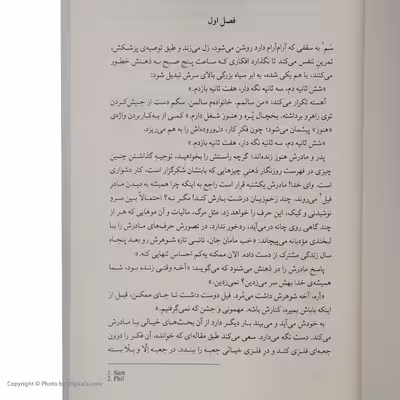 فصل اول
سَم¹ به سقفی که آرام‌آرام دارد روشن می‌شود، زل می‌زند و طبق توصیه‌ی پزشکش،
تمرین تنفس می‌کند تا نگذارد افکاری که ساعت پنج صبح به ذهنش خطور
می‌کنند، با هم یکی شده، به ابر سیاه بزرگی بالای سرش تبدیل شود:
«شش ثانیه دم، سه ثانیه نگه دار، هفت ثانیه بازدم.»
آهسته تکرار می‌کند: «من سالمم. خانواده‌م سالمن. سگم دست از جیش‌کردن
توی راهرو برداشته. یخچال پُره و هنوز شغل دارم.» کمی از به‌کاربردن واژه‌ی
«هنوز» پشیمان می‌شود؛ چون فکر کار، دل‌وروده‌اش را به هم می‌ریزد.
«شش ثانیه دم، سه ثانیه نگه دار، هفت ثانیه بازدم.»
پدر و مادرش هنوز زنده‌اند؛ گرچه راستش را بخواهید، توجیه گذاشتن چنین
چیزی در فهرست روزنگار ذهنیِ چیزهایی که بابتشان شکرگزار است، کار دشواری
است. وای خدا! مادرش یکشنبه قرار است راجع به اینکه چرا همیشه به دیدن مادرِ
فیل² می‌روند، چند زخم‌زبان درشت بارش کند! مگر نه؟ احتمالاً بین سرو
نوشیدنی و کیک، این حرف را خواهد زد. مثل مرگ، مالیات و آن موهایی که هر از
چند گاهی روی چانه در می‌آید، ردخور ندارد. در تصورش حرف‌های مادرش را با
لبخندی مؤدبانه می‌پیچاند: «خب مامان جان، نانسی تازه شوهرش رو بعد پنجاه
سال زندگی مشترک از دست داده. الان ممکنه یه‌کم احساس تنهایی کنه.»
پاسخ مادرش را در ذهنش می‌شنود که می‌گوید: «آخه وقتی زنده بود، شما
همیشه‌ی خدا بهش سر می‌زدین؟ نمی‌زدین.»
«آره، آخه شوهرش داشت می‌مُرد. فیل دوست داشت تا جای ممکن، قبل از
اینکه باباش بمیره، کنارش باشه. مهمونی و جشن که نمی‌گرفتیم.»
به خودش می‌آید و می‌بیند بار دیگر دارد از آن بحث‌های خیالی با مادرش
می‌کند. دست نگه می‌دارد. سعی می‌کند طبق مقاله‌ای که خوانده، آن فکر را درون
جعبه‌ای فلزی کند و درِ فلزی خیالی جعبه را ببندد. در جعبه اِلّا و بِلّا بسته
1. Sam
2. Phil
Copyright © Photo by Digikala.com